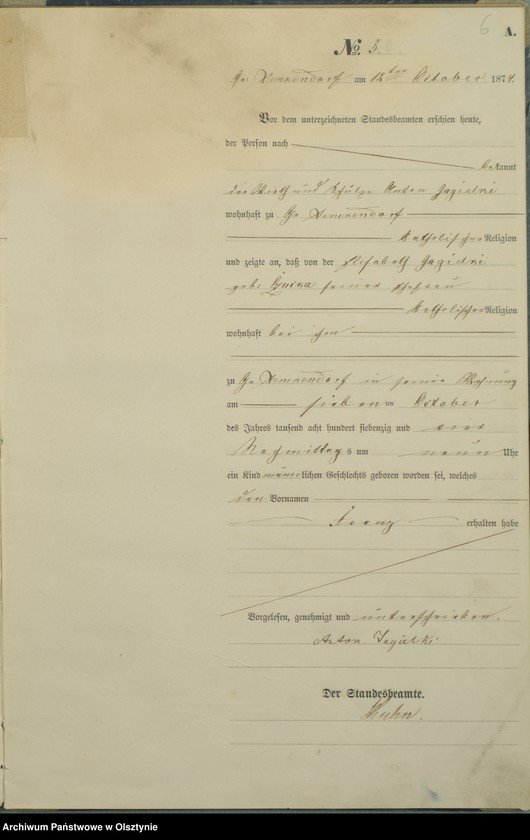 6
A.
No. 5.
Gr. Lemkendorf am 12ten October 1874.
Vor dem unterzeichneten Standesbeamten erschien heute,
der Person nach
bekannt
der Wirth und Schulze Anton Jagielki
wohnhaft zu Gr. Lemkendorf
katholischer Religion
und zeigte an, daß von der Elisabeth Jagielki
geb. seiner Ehefrau
katholischer Religion
wohnhaft bei ihm
zu Gr. Lemkendorf in seiner Wohnung
am sieben ten October
des Jahres tausend acht hundert siebenzig und vier
Nachmittags um neun Uhr
ein Kind männlichen Geschlechts geboren worden sei, welches
den Vornamen
Franz erhalten habe
Vorgelesen, genehmigt und unterschrieben.
Anton Jagielki
Der Standesbeamte.
Kuhn.
Archiwum Państwowe w Olsztynie